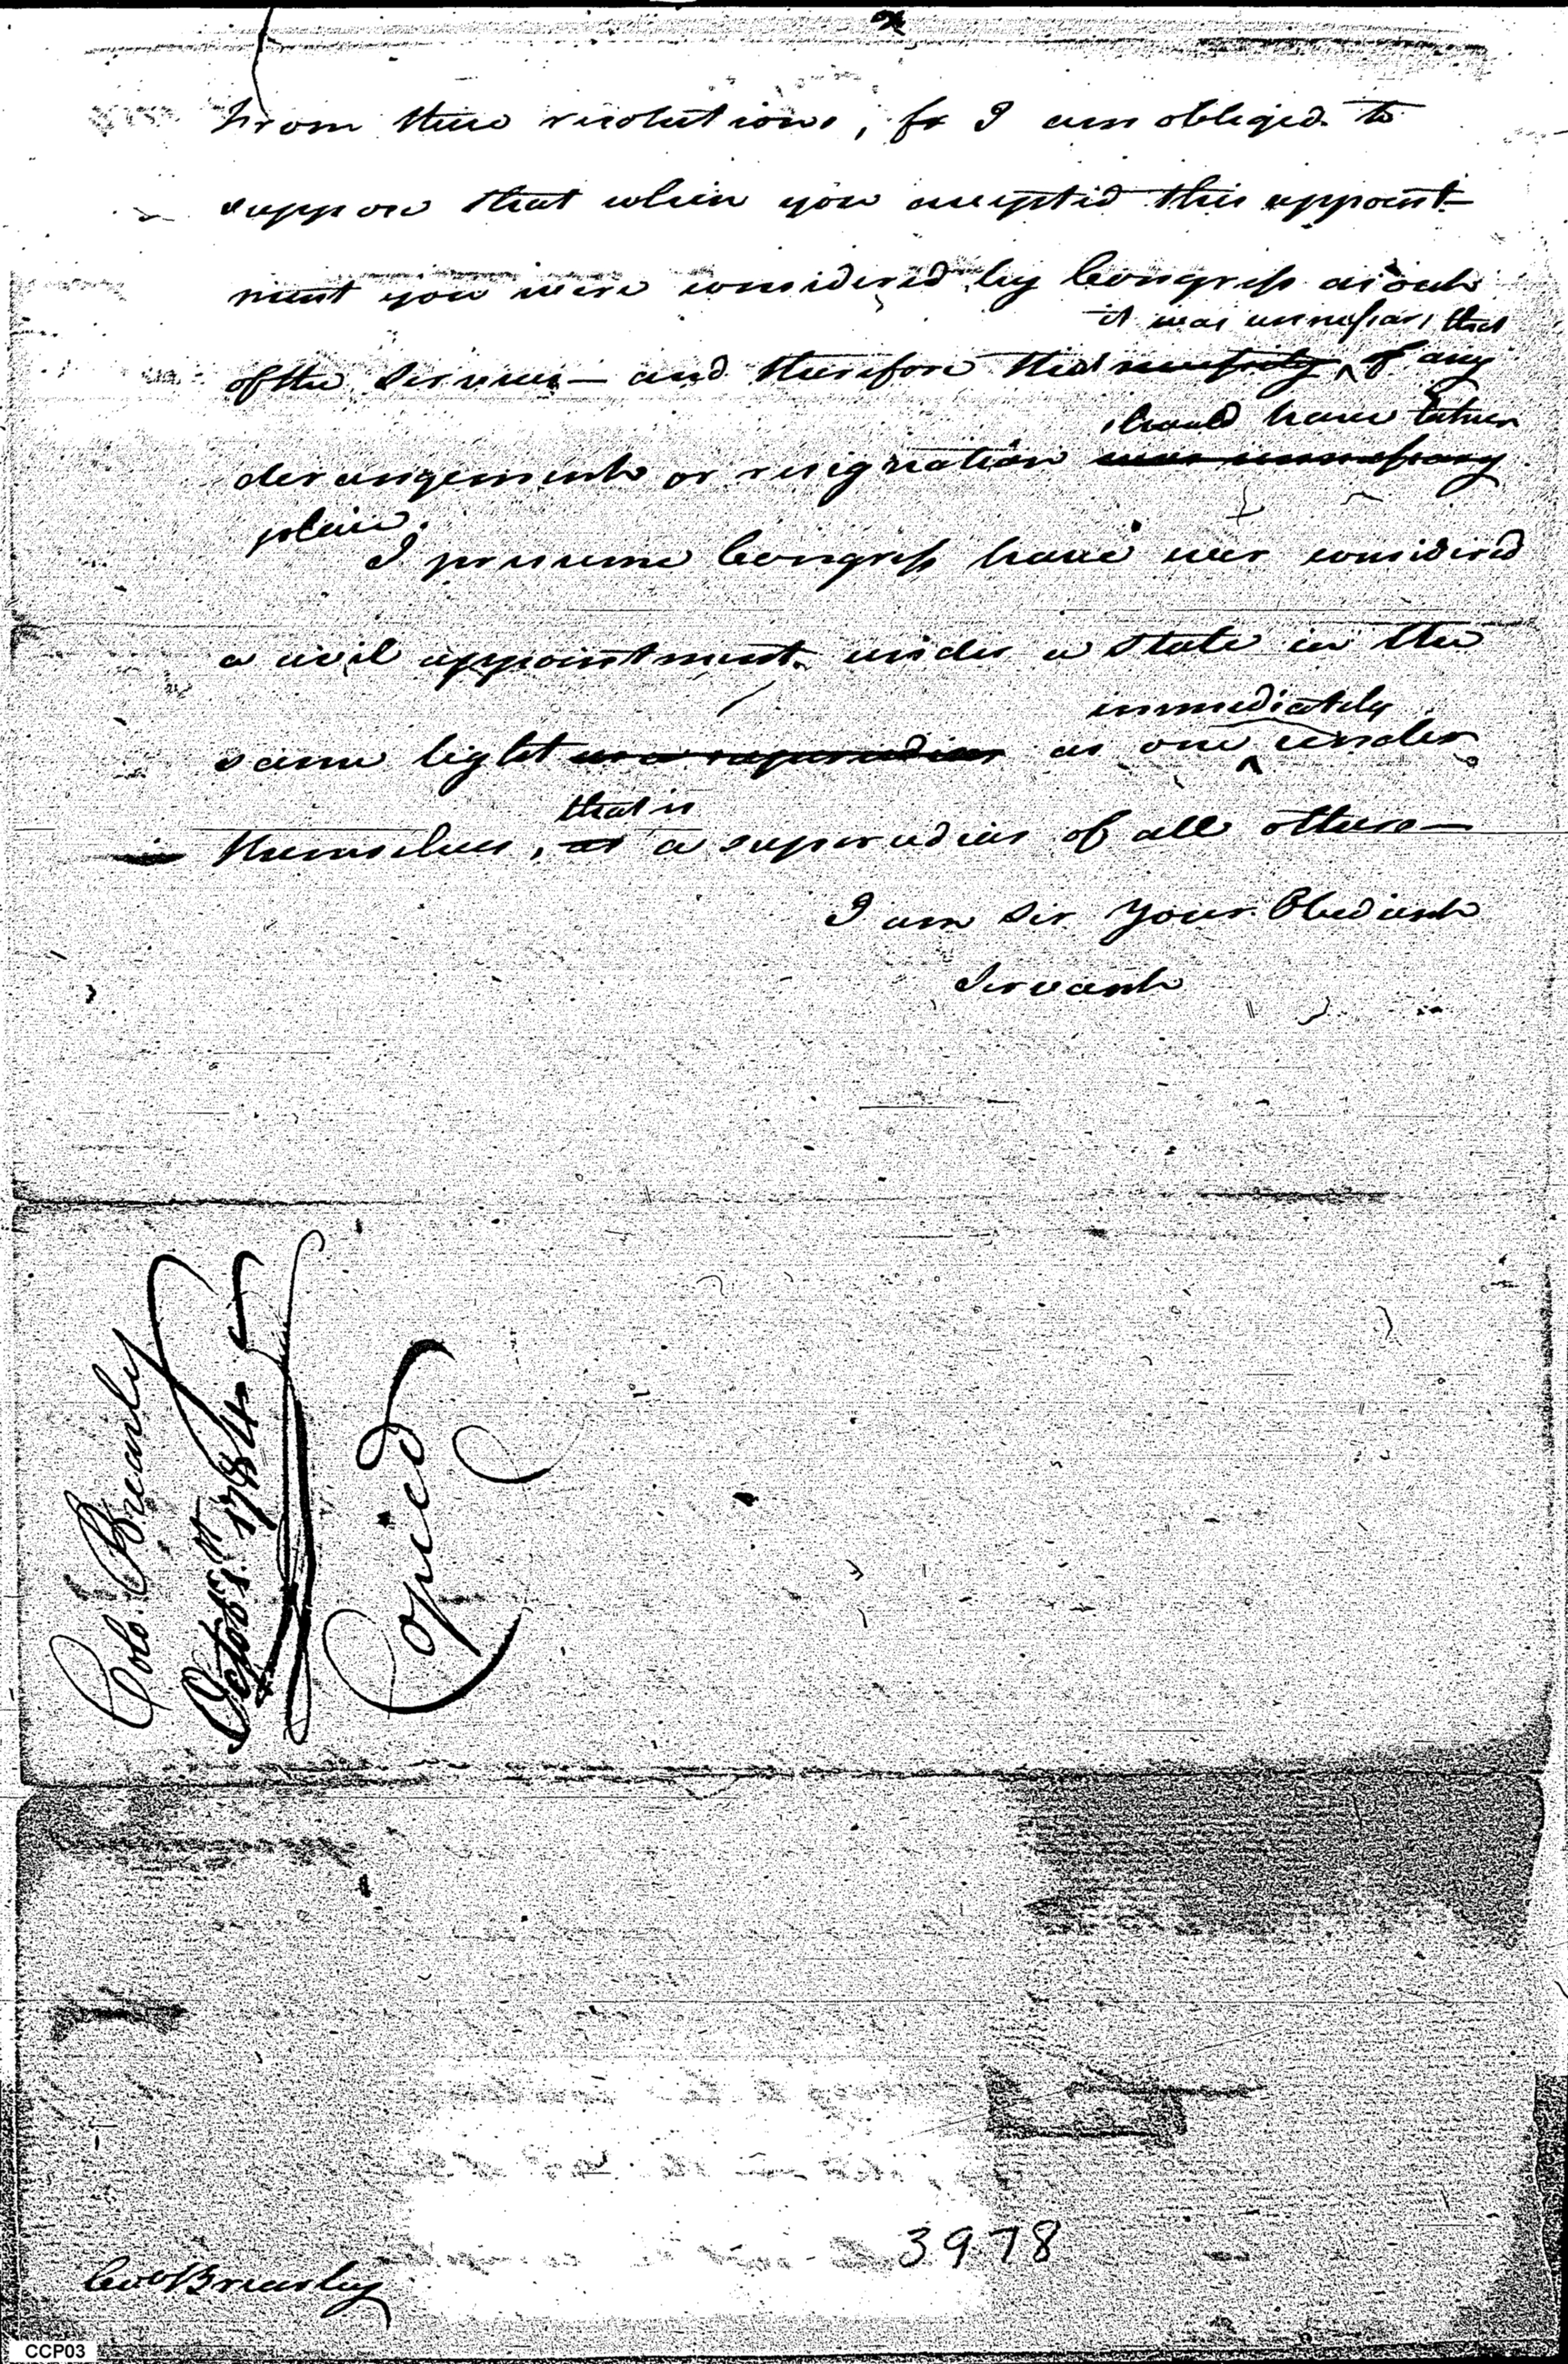 2
From these resolutions, fr I am obliged to
suppose that when you accepted this appoint-
ment you were considered by Congress as out
it was unnessary that
of the Service — and therefore that necessity of any
should have taken
derangement or resignation was unnessary
place.
I presume Congress have ever considered
a civil appointment under a State in the
immediately
same light as a supersedeas as one under
that is
themselves, as a supersedeas of all others —
I am Sir Your Obedient
Servant
Colo. Brearly
Octob. 1st 1784
Copied
3978
Colo Brearley
CCP03